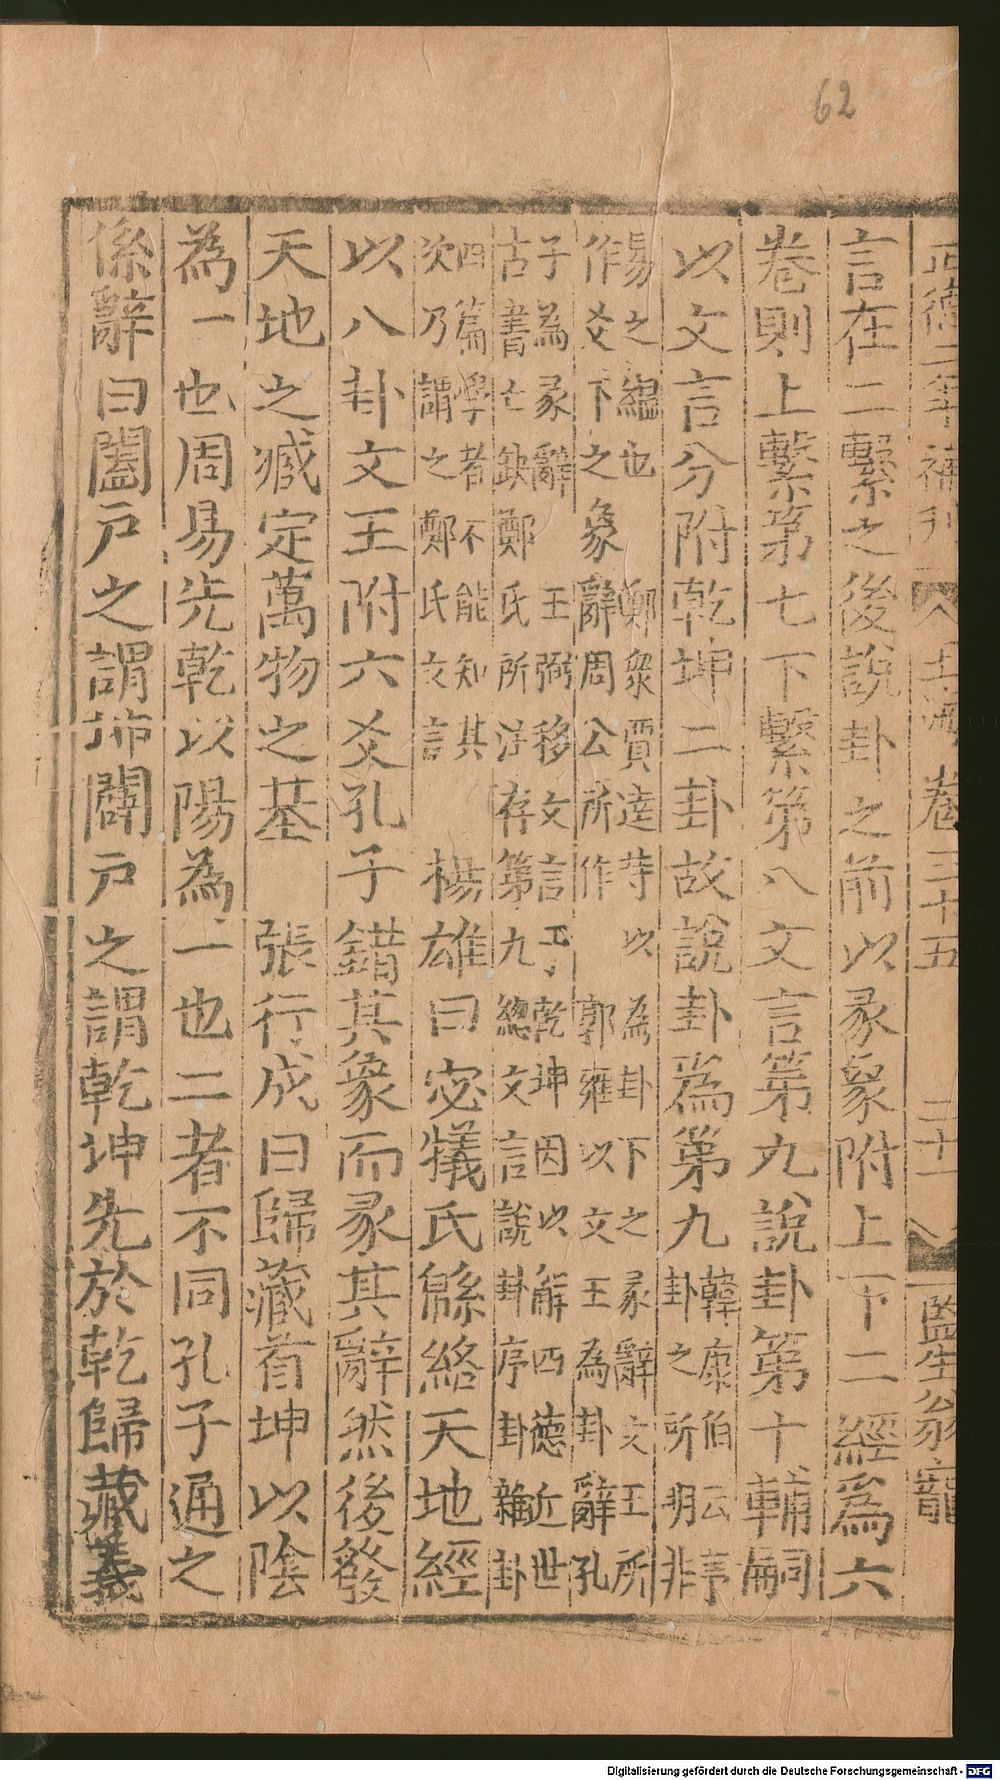 62
正德二年補刊 玉海 卷三十五 三十一 監生翁寵
言在二繫之後說卦之前以彖象附上下二經為六
卷則上繫第七下繫第八文言第九說卦第十輔嗣
以文言分附乾坤二卦故說卦為第九韓康伯云
卦之所明非
易之縕也 鄭衆賈逵等以為卦下之彖辭文王所
作爻下之象辭周公所作 郭雍以文王為卦辭孔
子為彖辭 王弼移文言于乾坤因以解四德近世
古書亡缺鄭氏所注存第九總文言說卦序卦雜卦
四篇學者不能知其
次乃謂之鄭氏文言 楊雄曰宓犧氏緜絡天地經
以八卦文王附六爻孔子錯其象而彖其辭然後發
天地之臧定萬物之基 張行成曰歸藏首坤以陰
為一也周易先乾以陽為一也二者不同孔子通之
係辭曰闔戸之謂坤闢戸之謂乾坤先於乾歸藏義
Digitalisierung gefördert durch die Deutsche Forschungsgemeinschaft - DFG